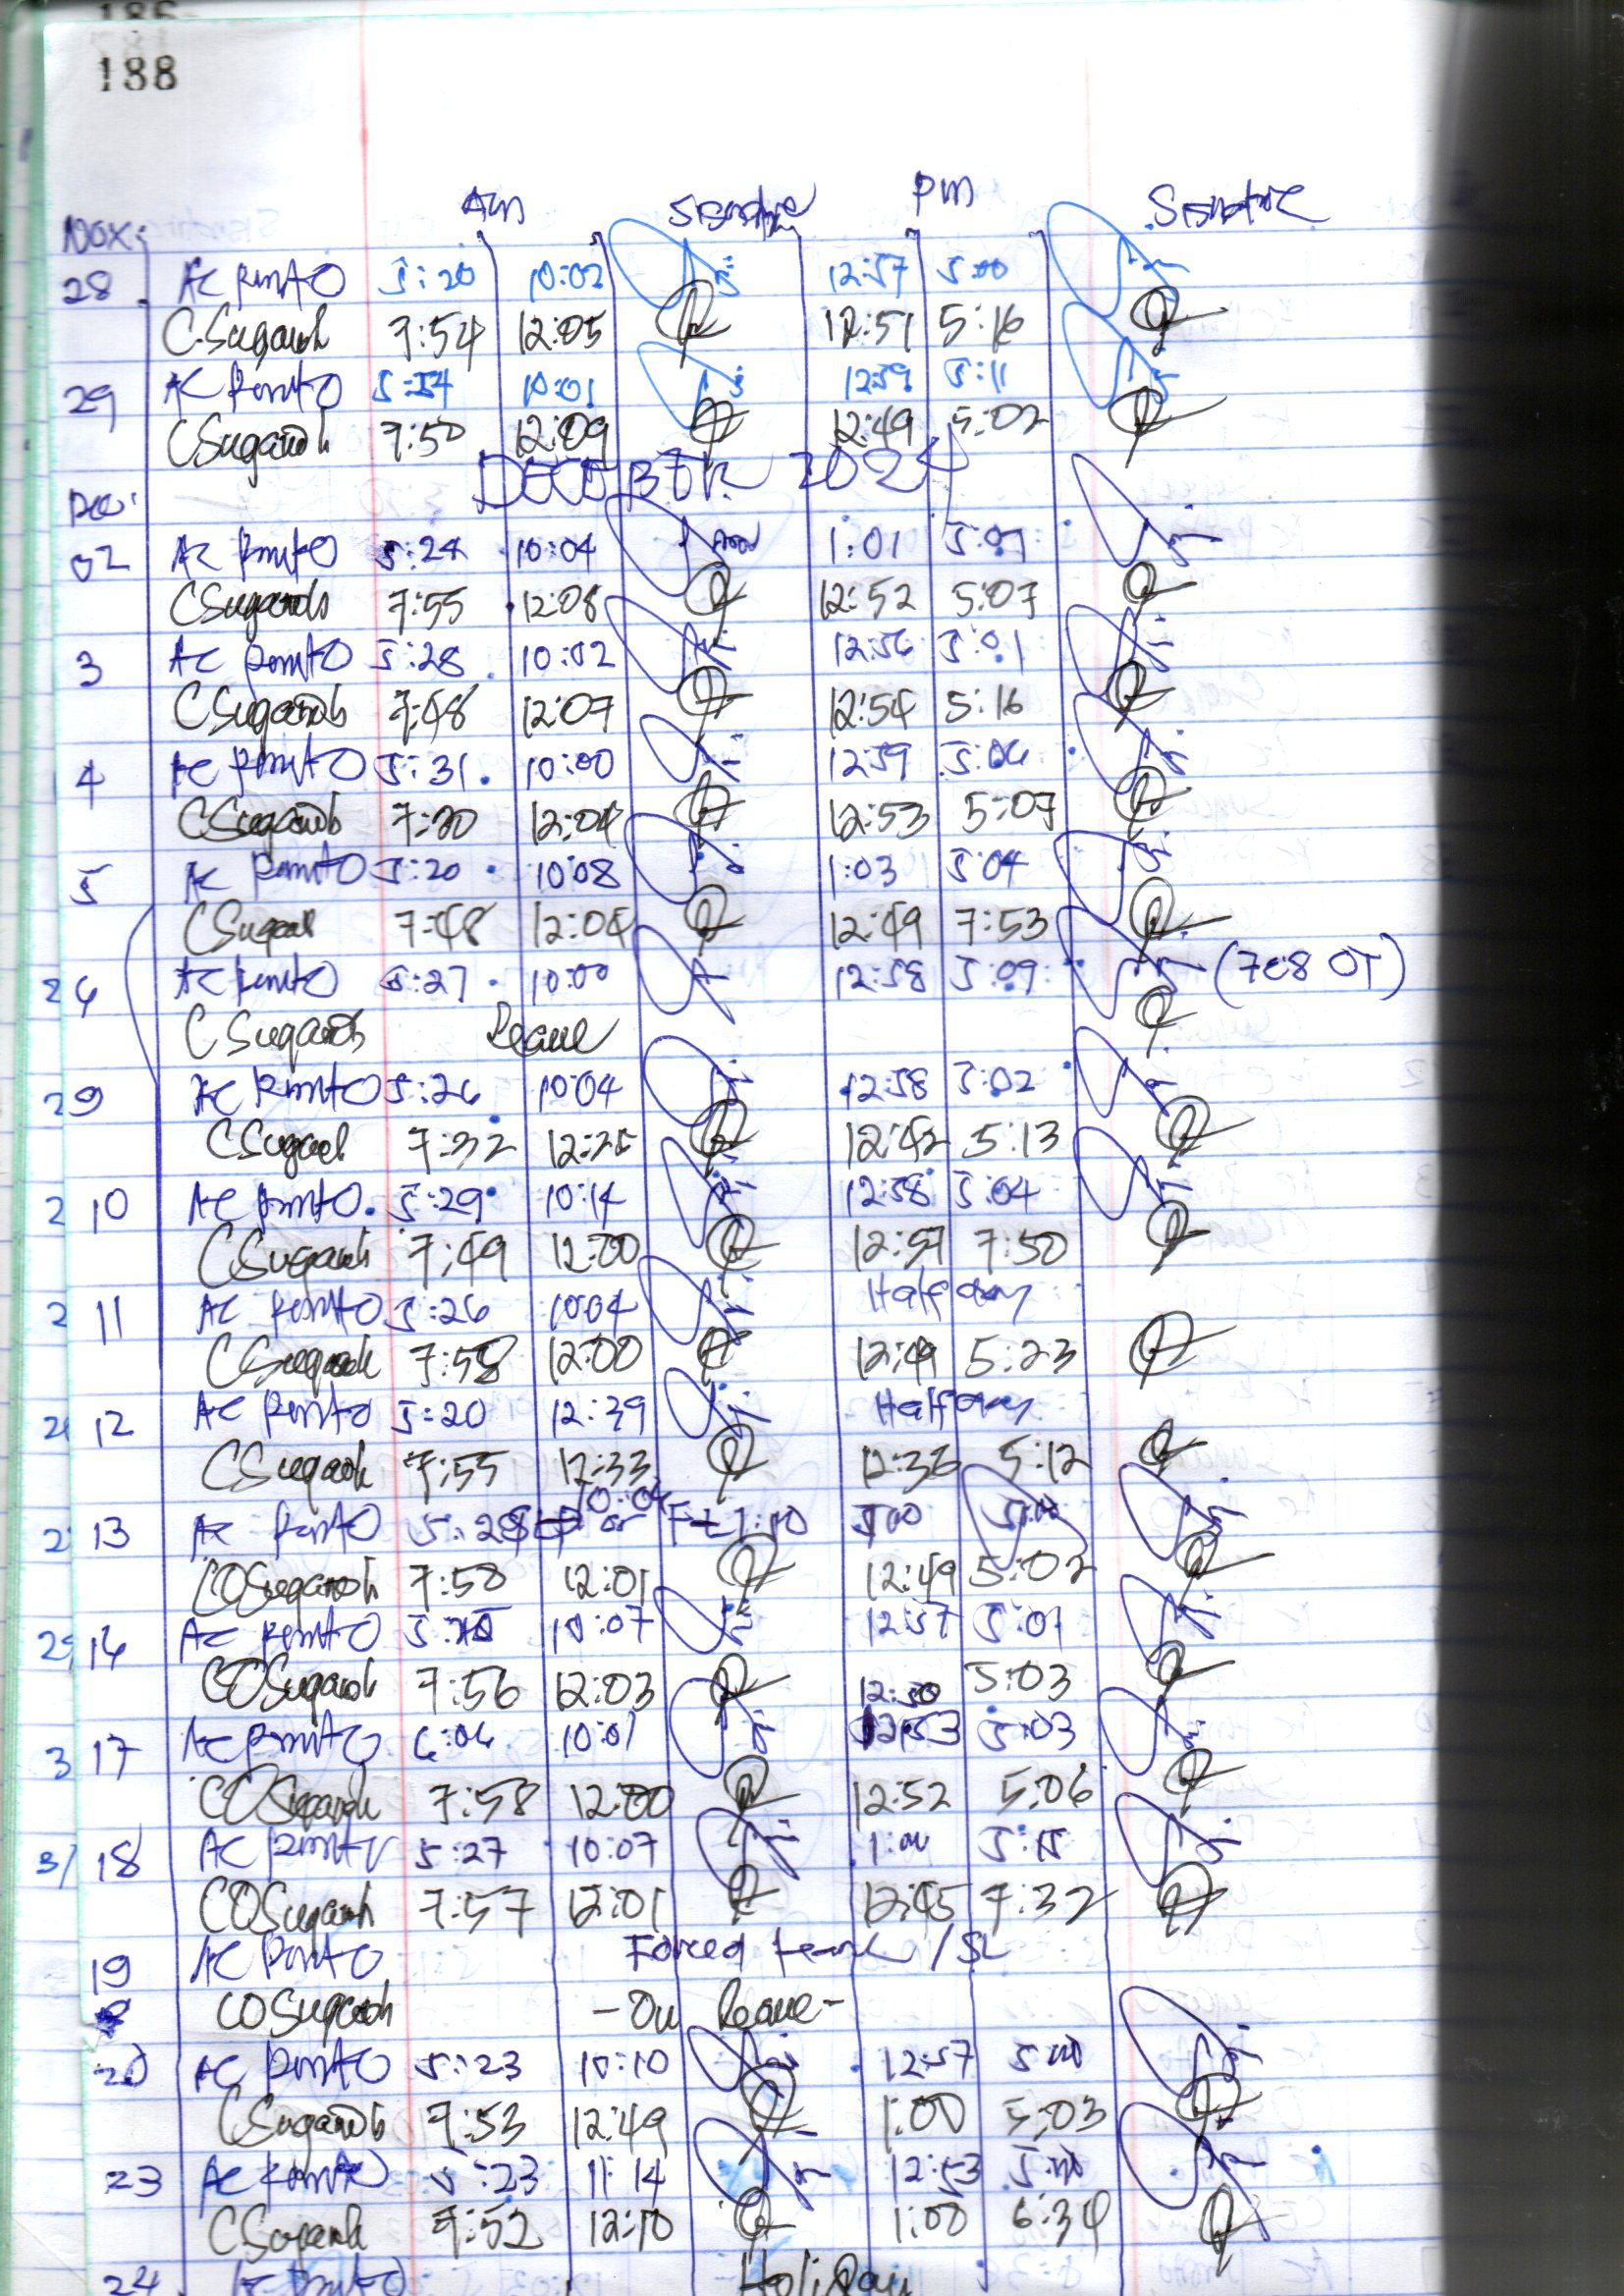 188
Am Signature Pm Signature
Nov:
28 AC Pinto 5:20 10:02 12:57 5:00
C.Sugarol 7:54 12:05 12:51 5:16
29 AC Pinto 10:01 12:59 5:11
CSugarol 7:50 12:09 12:49 5:02
DECEMBER 2024
Dec:
02 AC Pinto 5:24 10:04 1:01 5:07
CSugarol 7:55 12:08 12:52 5:07
3 AC Pinto 5:28 10:02 12:56 5:01
CSugarol 7:48 12:07 12:54 5:16
4 AC Pinto 5:31 10:00 12:59 5:06
CSugarol 7:20 12:04 12:53 5:07
5 AC Pinto 5:20 10:08 1:03 5:04
CSugarol 7:48 12:04 12:49 7:53
6 AC Pinto 5:27 10:00 12:58 5:09 (7&8 OT)
CSugarol Leave
9 AC Pinto 5:26 10:04 12:58 5:02
CSugarol 7:32 12:25 12:42 5:13
10 AC Pinto 5:29 10:14 12:58 5:04
CSugarol 7:49 12:00 12:57 7:50
11 AC Pinto 5:26 10:04 Half day
CSugarol 7:58 12:00 12:49 5:23
12 AC Pinto 5:20 12:39 Half day
CSugarol 7:55 12:33 12:36 5:12
13 AC Pinto 5:28 10:04 1:10 5:00
COSugarol 7:58 12:01 12:49 5:02
16 AC Pinto 10:07 12:57 5:01
COSugarol 7:56 12:03 12:30 5:03
17 AC Pinto 6:06 10:01 12:53 5:03
COSugarol 7:58 12:00 12:52 5:06
18 AC Pinto 5:27 10:07 1:00 5:15
COSugarol 7:57 12:01 12:45 7:32
19 AC Pinto Forced leave / SL
COSugarol - On Leave -
20 AC Pinto 5:23 10:10 12:57 5:00
CSugarol 7:53 12:49 1:00 5:03
23 AC Pinto 5:23 11:14 12:53 5:00
CSugarol 7:52 12:10 1:00 6:34
24 AC Pinto Holiday